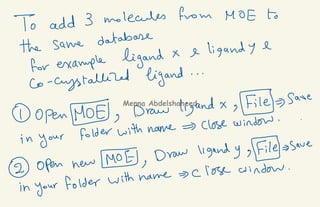 To add 3 molecules from MOE to
the same database
for example ligand x & ligand y &
Co-crystallized ligand ...
① Open MOE, Draw ligand x, File ⇒ Save
in your folder with name ⇒ close window.
② Open new MOE, Draw ligand y, File ⇒ Save
in your folder with name ⇒ close window.
Menna Abdelshaheed